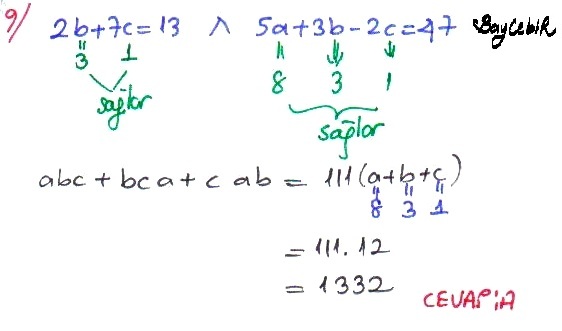 9/ 2b+7c=13 ∧ 5a+3b-2c=47 BayCebiR
3 1 8 3 1
sağlar sağlar
abc + bca + c ab = 111(a+b+c)
8 3 1
= 111.12
= 1332
CEVAP:A